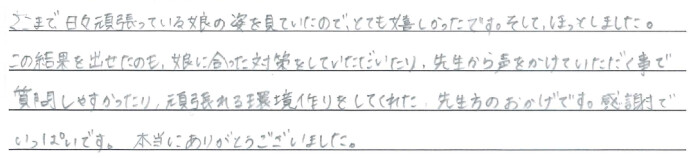 ここまで日々頑張っている娘の姿を見ていたので、とても嬉しかったです。そして、ほっとしました。
この結果を出せたのも、娘に合った対策をしていただいたり、先生から声をかけていただく事で
質問しやすかったり、頑張れる環境作りをしてくれた、先生方のおかげです。感謝で
いっぱいです。 本当にありがとうございました。